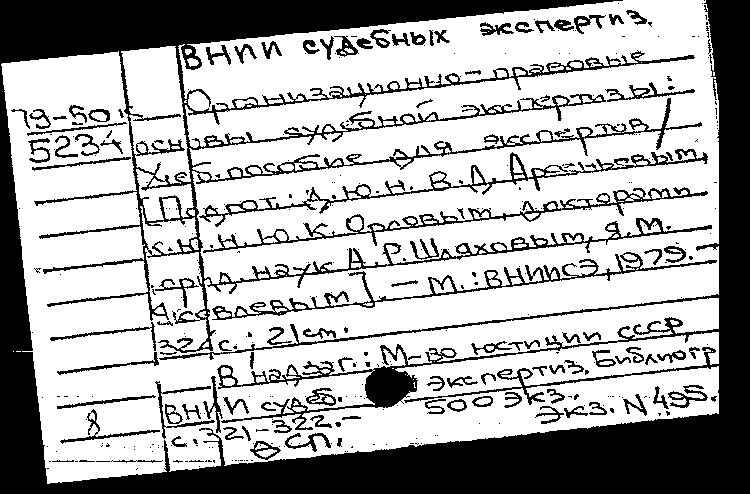 ВНИИ судебных экспертиз.
Организационно-правовые
79-50к
5234 основы судебной экспертизы:
Учеб. пособие для экспертов /
[Подгот.: д.ю.н. В.Д. Арсеньевым,
к.ю.н. Ю.К. Орловым, докторами
юрид. наук А.Р. Шляховым, Я.М.
Яковлевым]. — М.: ВНИИСЭ, 1979. —
324 с.; 21 см.
В надзаг.: М-во юстиции СССР,
ВНИИ судеб. экспертиз. Библиогр
8 с. 321-322. — 500 экз.
ДСП. Экз. N 495.